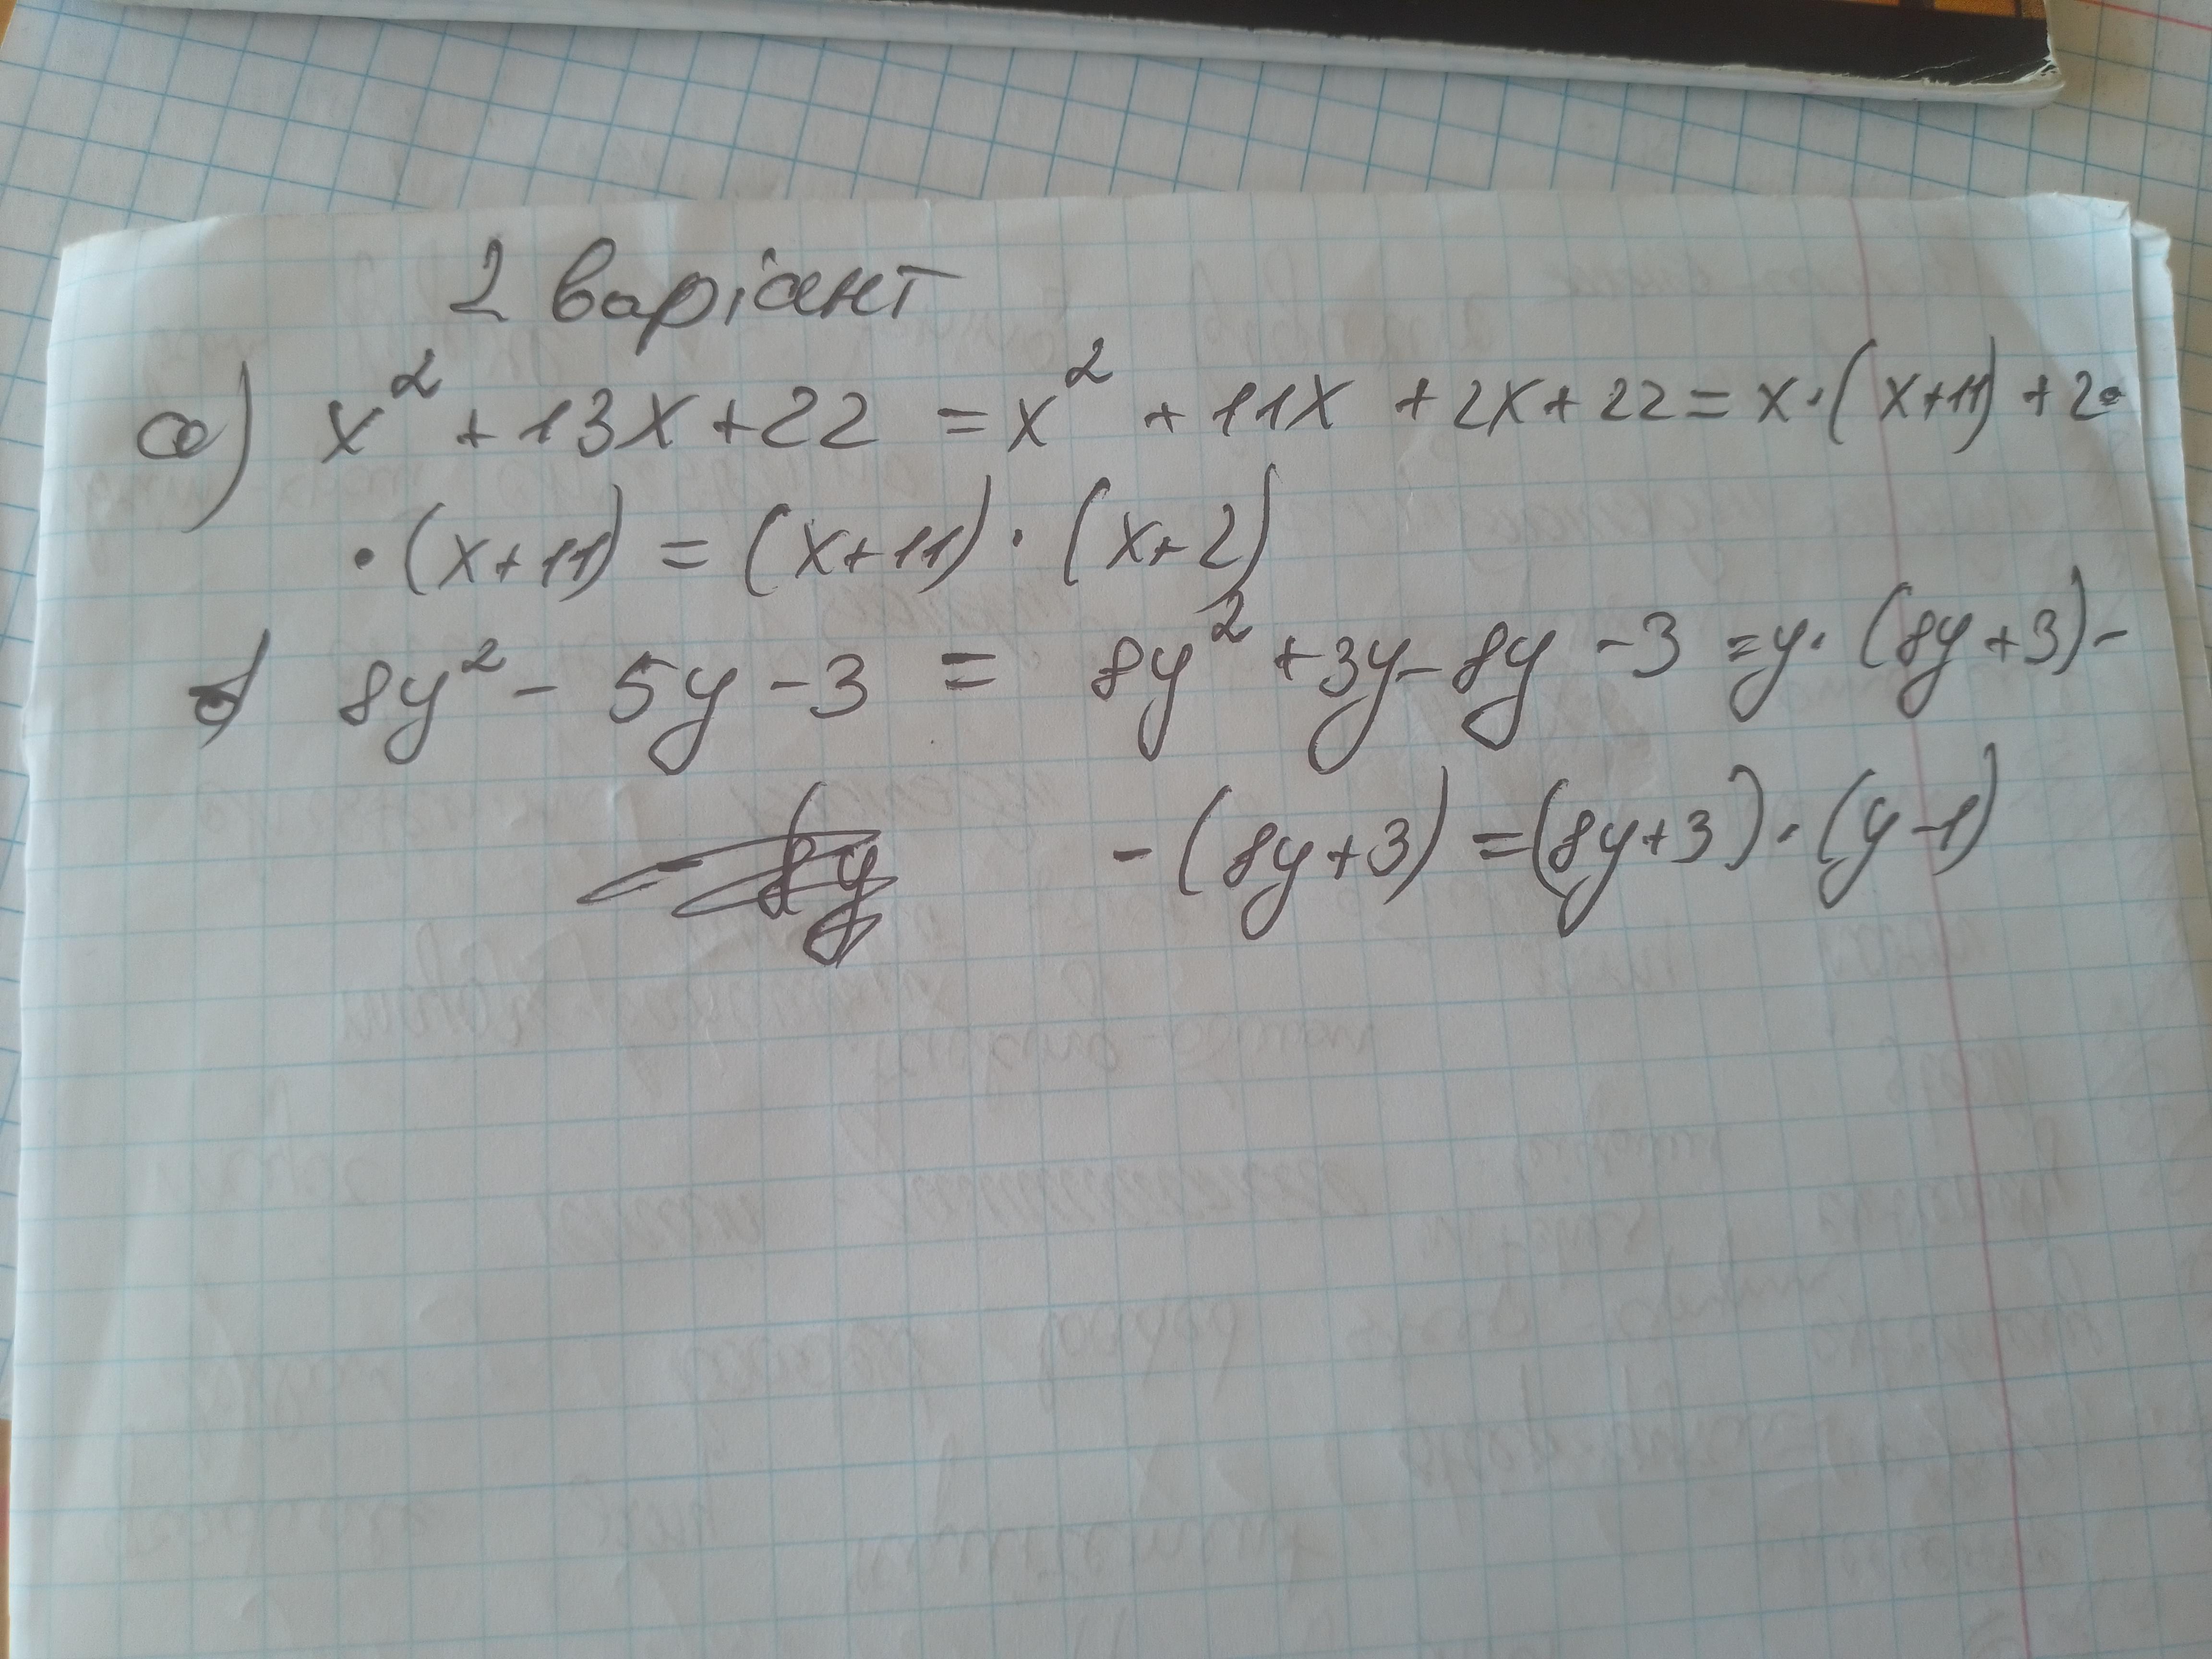 2 варіант
а) x² + 13x + 22 = x² + 11x + 2x + 22 = x · (x+11) + 2 ·
· (x + 11) = (x + 11) · (x + 2)
б) 8y² - 5y - 3 = 8y² + 3y - 8y - 3 = y · (8y + 3) -
- (8y + 3) = (8y + 3) · (y - 1)